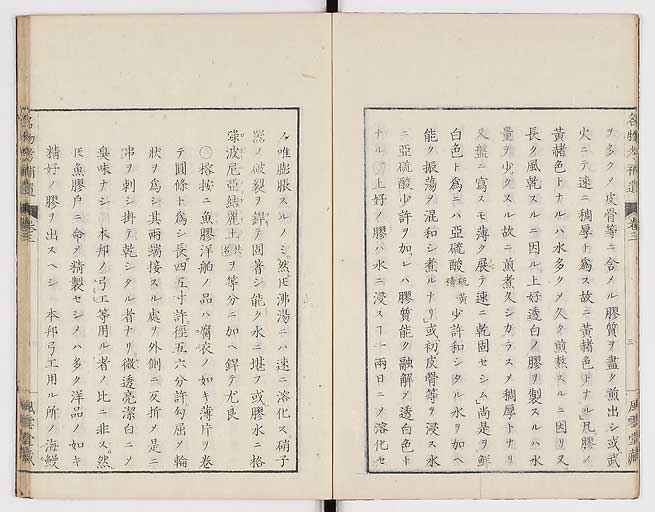 名物考補遺 卷三 三 風雲堂藏
ヲ多クノ皮骨等ニ含メル膠質ヲ盡ク煎出シ或武
火ニテ速ニ稠厚ト爲ス故ニ黄赭色トナル」凡膠ノ
黄赭色トナルハ水多クメ久ク煎熬スルニ因リ又
長ク風乾スルニ因ル」上好透白ノ膠ヲ製スルハ水
量ヲ少クスル故ニ煎煮久シカラスメ稠厚トナリ
又盤ニ寫スモ薄ク展テ速ニ乾固セシム」尚是ヲ鮮
白色ト為ニハ亞硫酸 硫黄 少許和シタル水ヲ加ヘ
能ク振蕩メ混和シ煮ルナリ或初皮骨等ヲ浸ス水
ニ亞硫酸少許ヲ加レハ膠質能ク融解メ透白色ト
ナル」上好ノ膠ハ水ニ浸スヿ一兩日ニメ溶化セ
ス唯膨脹スルノミ然𪜈沸湯ニハ速ニ溶化ス硝子
器ノ破裂ヲ銲テ固著シ能ク水ニ堪フ或膠水ニ格
碌波尼亞結麗土ヲ等分ニ加ヘ銲テ尤良
〇榕按ニ魚膠洋舶ノ品ハ腐衣ノ如キ薄片ヲ卷
テ圓條ト為シ長四五寸許徑五六分許勾屈メ輪
狀ヲ為シ其兩端接スル處ヲ外側ニ反折メ是ニ
串ヲ刺シ掛テ乾シタル者ナリ微透亮潔白ニメ
臭味ナシ」本邦ノ弓工等用ル者ノ比ニ非ス」然
𪜈魚膠戶ニ命メ精製セシメハ多ク洋品ノ如キ
精好ノ膠ヲ出スヘシ 本邦弓工用ル所ノ海鰻
名物考補遺 卷三 風雲堂藏